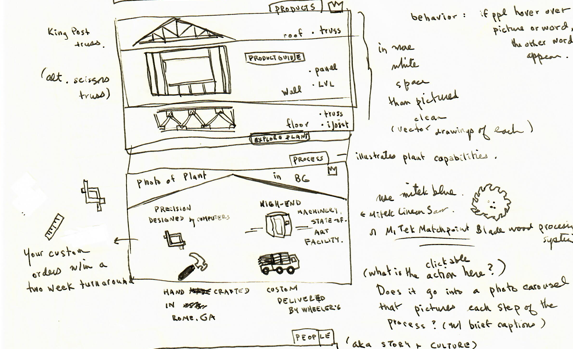 PRODUCTS
behavior: if ppl hover over
picture or word,
the other word
appear.
King Post
truss.
(alt. scissors
truss)
roof · truss
PRODUCT GUIDE
· panel
wall · LVL
· truss
floor · i/joist
in more
white
space
than pictured
clean
(vector drawings of each)
EXPLORE PLANT
PROCESS
illustrates plant capabilities.
Photo of Plant in BG
PRECISION
DESIGNED by COMPUTERS
HIGH-END
MACHINERY,
STATE-OF-
ART
FACILITY.
use mitek blue.
MiTek Linear Saw
MiTek Matchpoint Blade wood processing
system
Your custom
orders w/in a
two week turnaround
HAND CRAFTED
IN
ROME, GA
CUSTOM
DELIVERED
BY WHEELER'S
clickable
(what is the action here?)
Does it go into a photo carousel
that pictures each step of the
process? (w/ brief captions)
PEOPLE
(aka STORY & CULTURE)